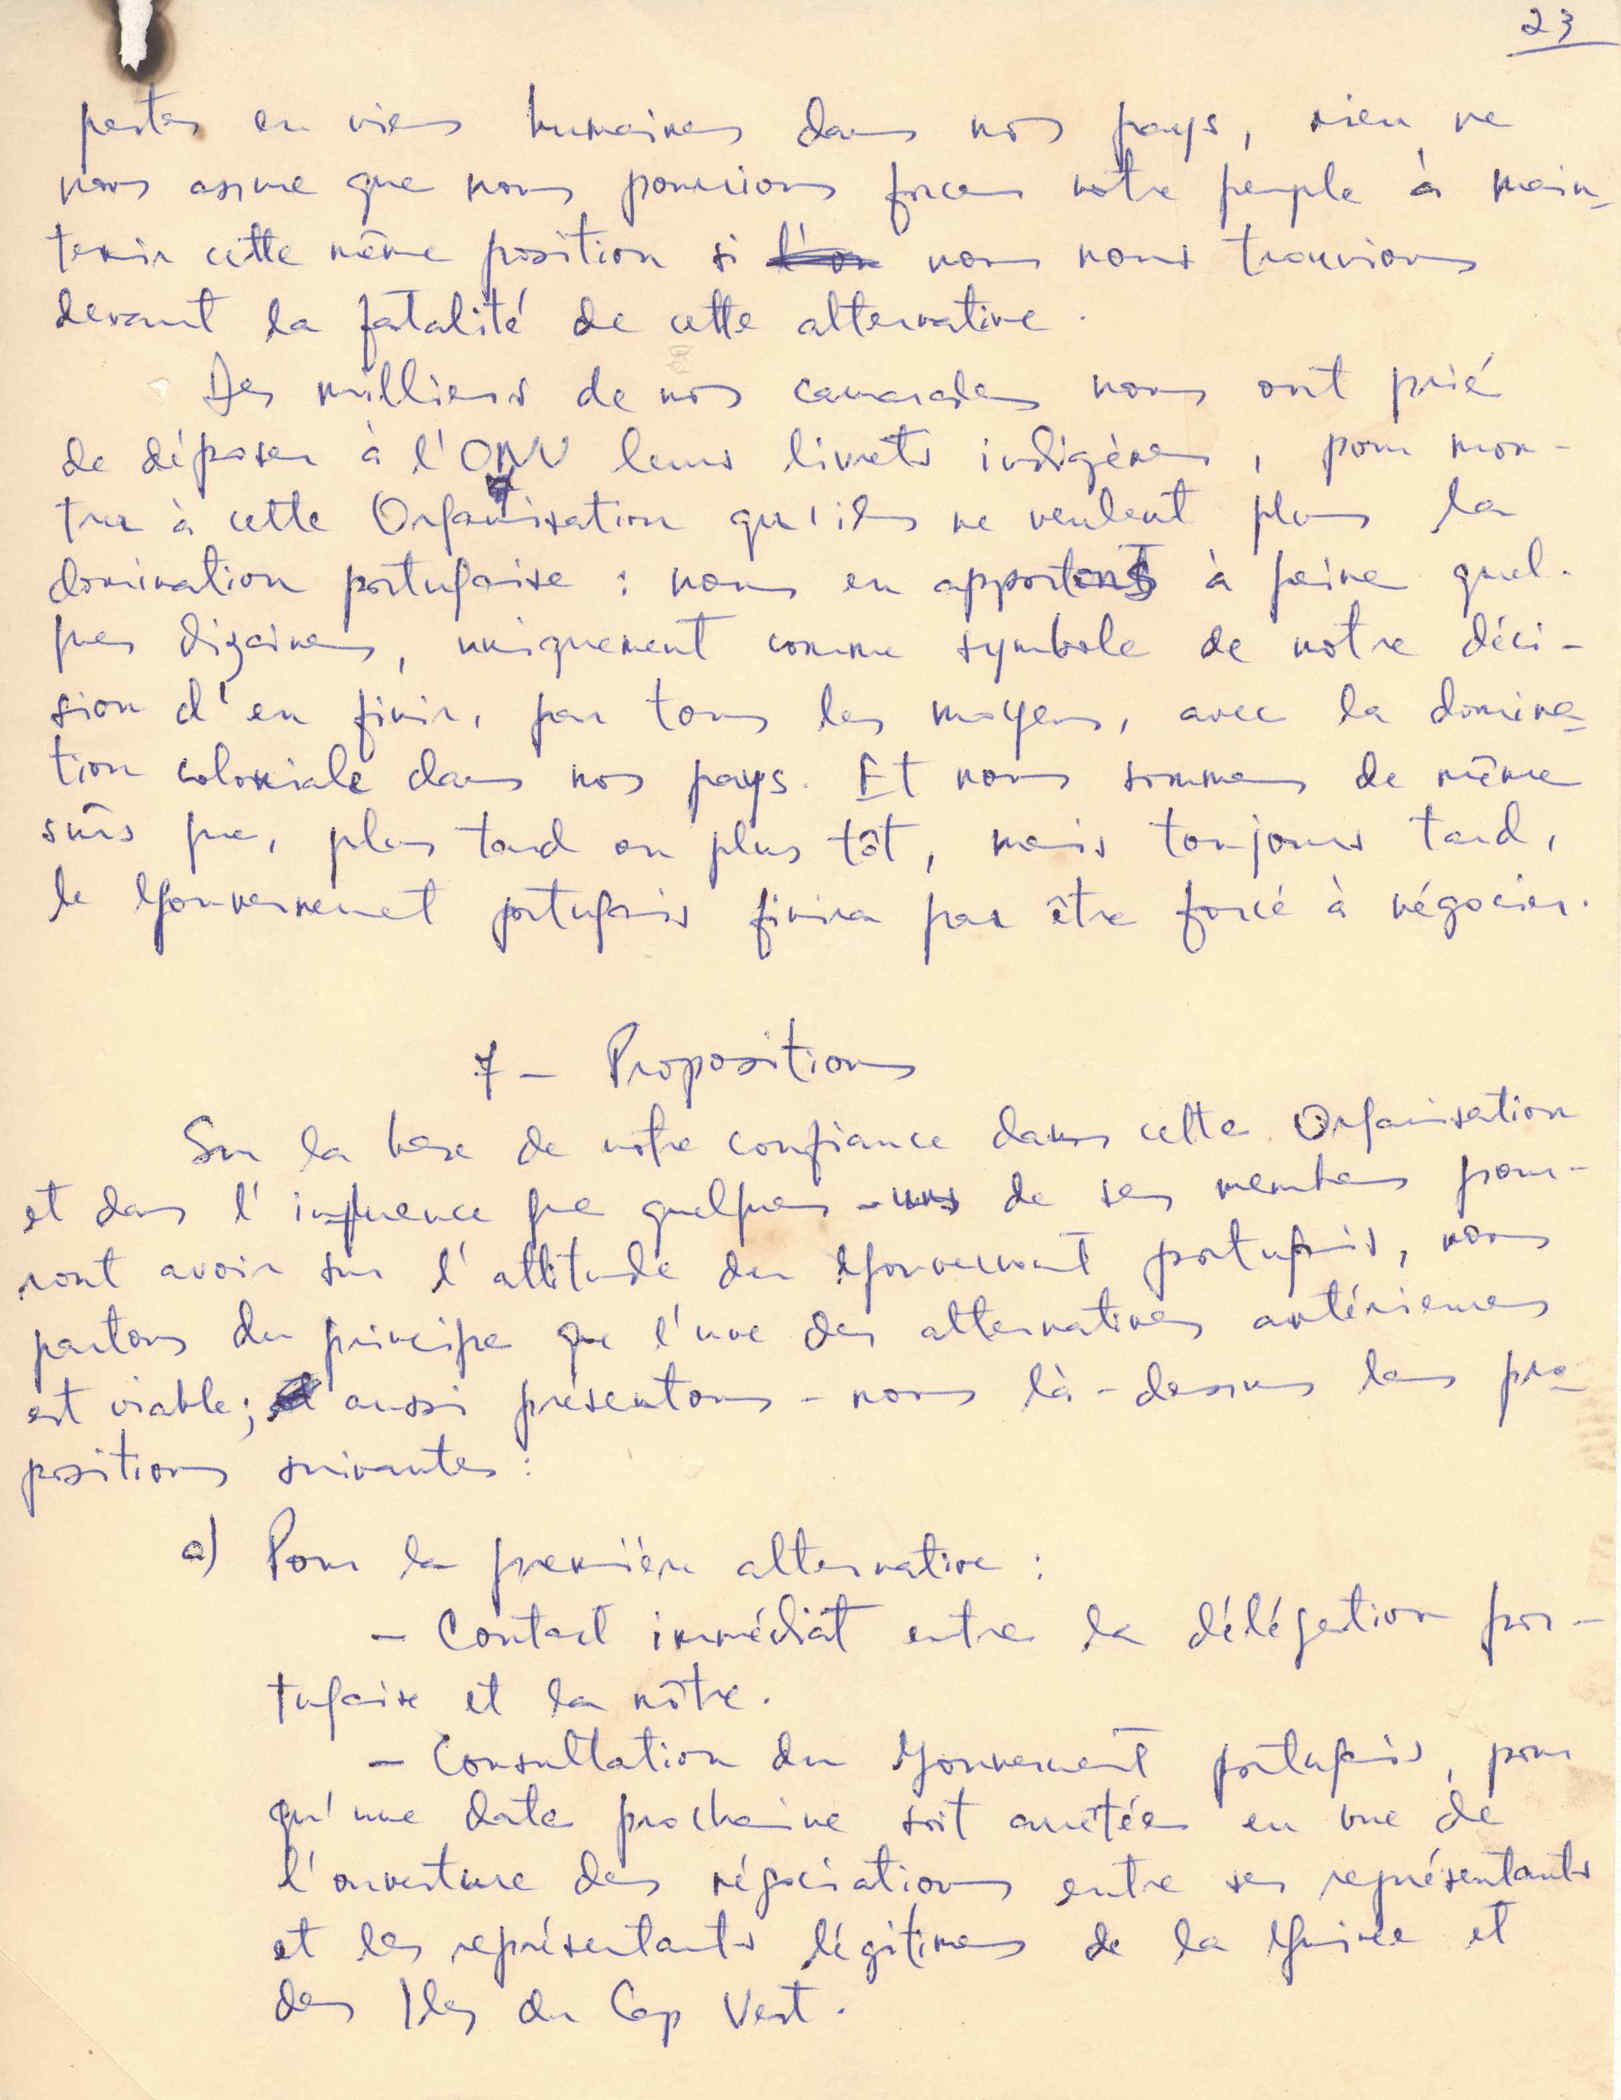 23
pertes en vies humaines dans nos pays, rien ne
nous assure que nous pourrions forcer notre peuple à main-
tenir cette même position si l'on nous nous trouvions
devant la fatalité de cette alternative.
Des milliers de nos camarades nous ont prié
de déposer à l'ONU leurs livrets indigènes, pour mon-
trer à cette Organisation qu'ils ne veulent plus la
domination portugaise : nous en apportons à peine quel-
ques dizaines, uniquement comme symbole de notre déci-
sion d'en finir, par tous les moyens, avec la domina-
tion coloniale dans nos pays. Et nous sommes de même
sûrs que, plus tard ou plus tôt, mais toujours tard,
le Gouvernement portugais finira par être forcé à négocier.
7 - Propositions
Sur la base de notre confiance dans cette Organisation
et dans l'influence que quelques-uns de ses membres pour-
ront avoir sur l'attitude du Gouvernement portugais, nous
partons du principe que l'une des alternatives antérieures
est viable; aussi présentons-nous là-dessus les pro-
positions suivantes :
a) Pour la première alternative :
- Contact immédiat entre la délégation por-
tugaise et la nôtre.
- Consultation du Gouvernement portugais, pour
qu'une date prochaine soit arrêtée en vue de
l'ouverture des négociations entre ses représentants
et les représentants légitimes de la Guinée et
des Iles du Cap Vert.